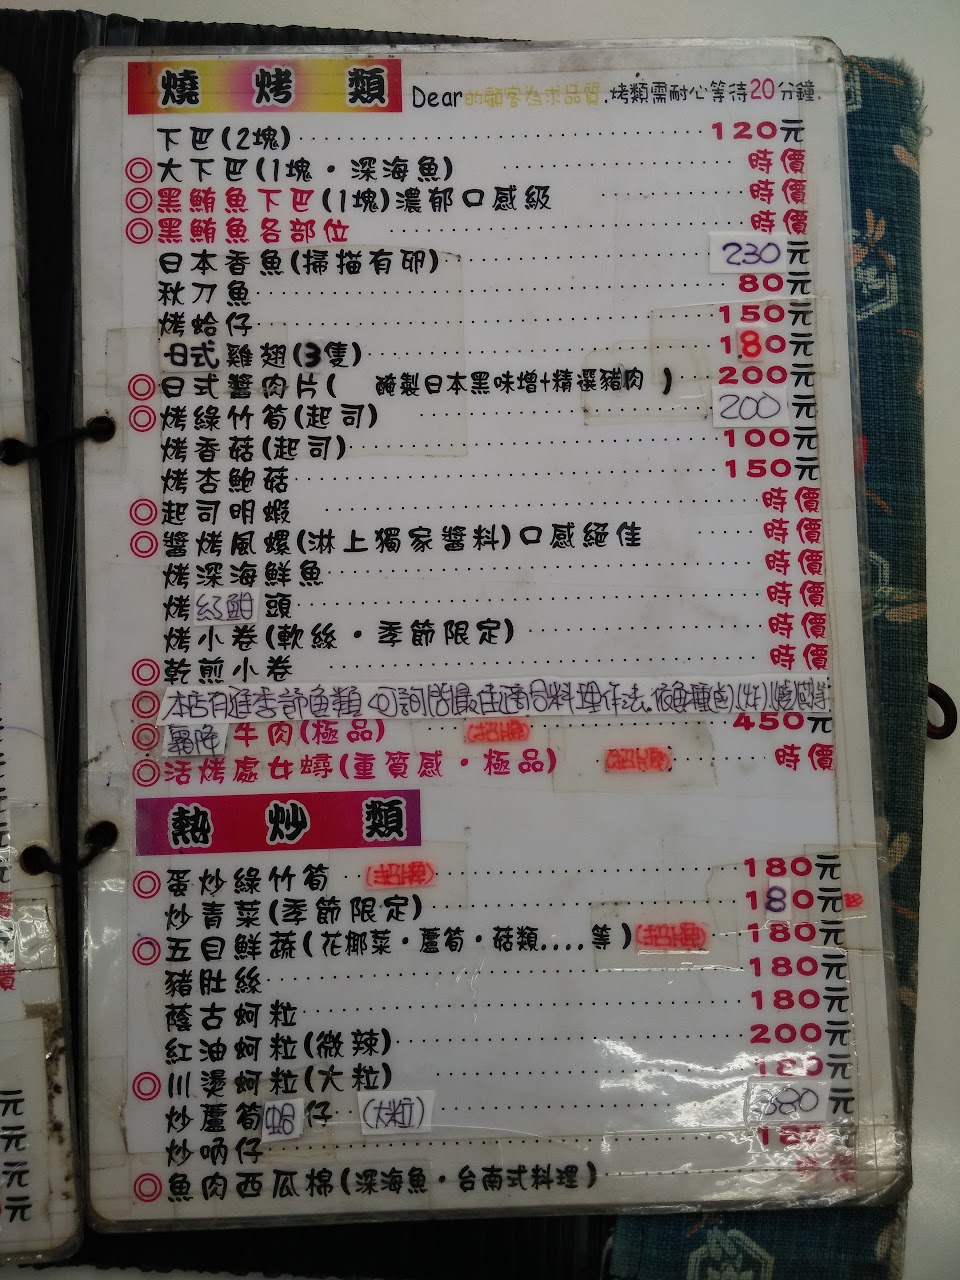 燒烤類 Dear的顧客為求品質.烤類需耐心等待20分鐘.
下巴(2塊) 120元
◎大下巴(1塊・深海魚) 時價
◎黑鮪魚下巴(1塊)濃郁口感級 時價
◎黑鮪魚各部位 時價
日本香魚(掃描有卵) 230元
秋刀魚 80元
烤蛤仔 150元
日式雞翅(3隻) 180元
◎日式醬肉片( 醃製日本黑味增+精選豬肉 ) 200元
◎烤綠竹筍(起司) 200元
烤香菇(起司) 100元
烤杏鮑菇 150元
◎起司明蝦 時價
◎醬烤風螺(淋上獨家醬料)口感絕佳 時價
烤深海鮮魚 時價
烤紅魽頭 時價
烤小卷(軟絲・季節限定) 時價
◎乾煎小卷 時價
◎本店有進季節魚類 可詢問最佳適合料理作法。依魚種
◎霜降牛肉(極品) (招牌) 450元
◎活烤處女蟳(重質感・極品) (招牌) 時價
熱炒類
◎蛋炒綠竹筍 (招牌) 180元
炒青菜(季節限定) 180元
◎五目鮮蔬(花椰菜・蘆筍・菇類....等) (招牌) 180元
豬肚絲 180元
蔭古蚵粒 180元
紅油蚵粒(微辣) 200元
◎川燙蚵粒(大粒) 180元
炒蘆筍蛤仔 (大粒) 380元
炒吶仔 元
◎魚肉西瓜棉(深海魚・台南式料理) 時價
元
元
元
元